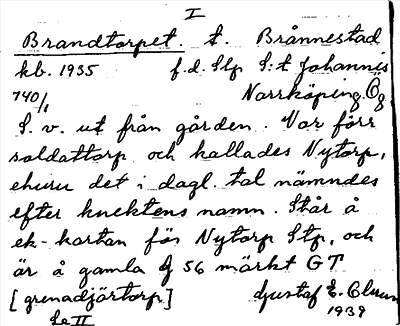 I
Brandtorpet. t. Brånnestad
kb. 1935 f.d. Stp S:t Johannis
740/1 Norrköping Ög
S. v. ut från gården. Var förr
soldattorp och kallades Nytorp,
ehuru det i dagl. tal nämndes
efter knektens namn. Står å
ek-kartan för Nytorp Stp, och
är å gamla 56 märkt GT
[grenadjärtorp] Gustaf E.
Se II 1939